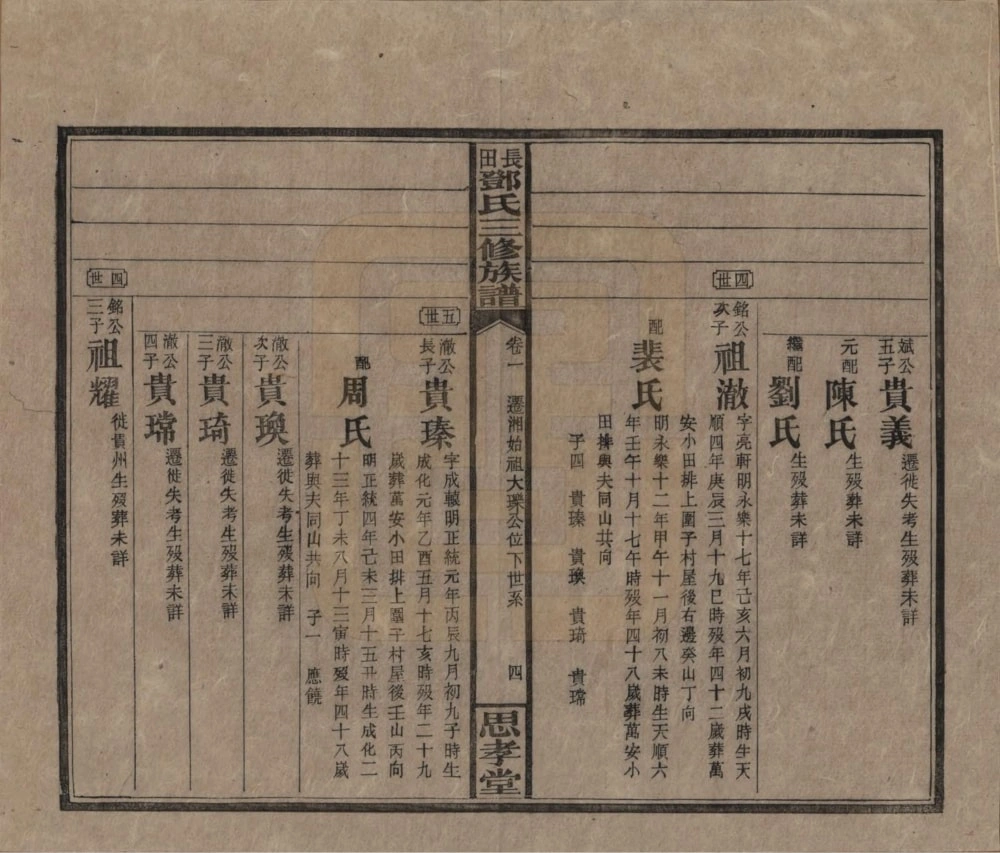 斌公五子
貴義
遷徙失考生歿葬未詳
元配
陳氏
生歿葬未詳
繼配
劉氏
生歿葬未詳
四世
銘公次子
祖澈
字亮軒明永樂十七年己亥六月初九戌時生天
順四年庚辰三月十九巳時歿年四十二歲葬萬
安小田排上圍子村屋後右邊癸山丁向
配
裴氏
明永樂十二年甲午十一月初八未時生天順六
年壬午十月十七午時歿年四十八歲葬萬安小
田排與夫同山共向
子四 貴瑧 貴瑍 貴琦 貴瑺
長田鄧氏三修族譜
卷一 遷湘始祖大瓅公位下世系 四
思孝堂
五世
澈公長子
貴瑧
字成轅明正統元年丙辰九月初九子時生
成化元年乙酉五月十七亥時歿年二十九
歲葬萬安小田排上圍子村屋後壬山丙向
配
周氏
明正統四年己未三月十五丑時生成化二
十三年丁未八月十三寅時歿年四十八歲
葬與夫同山共向 子一 應饒
澈公次子
貴瑍
遷徙失考生歿葬未詳
澈公三子
貴琦
遷徙失考生歿葬未詳
澈公四子
貴瑺
遷徙失考生歿葬未詳
四世
銘公三子
祖耀
徙貴州生歿葬未詳